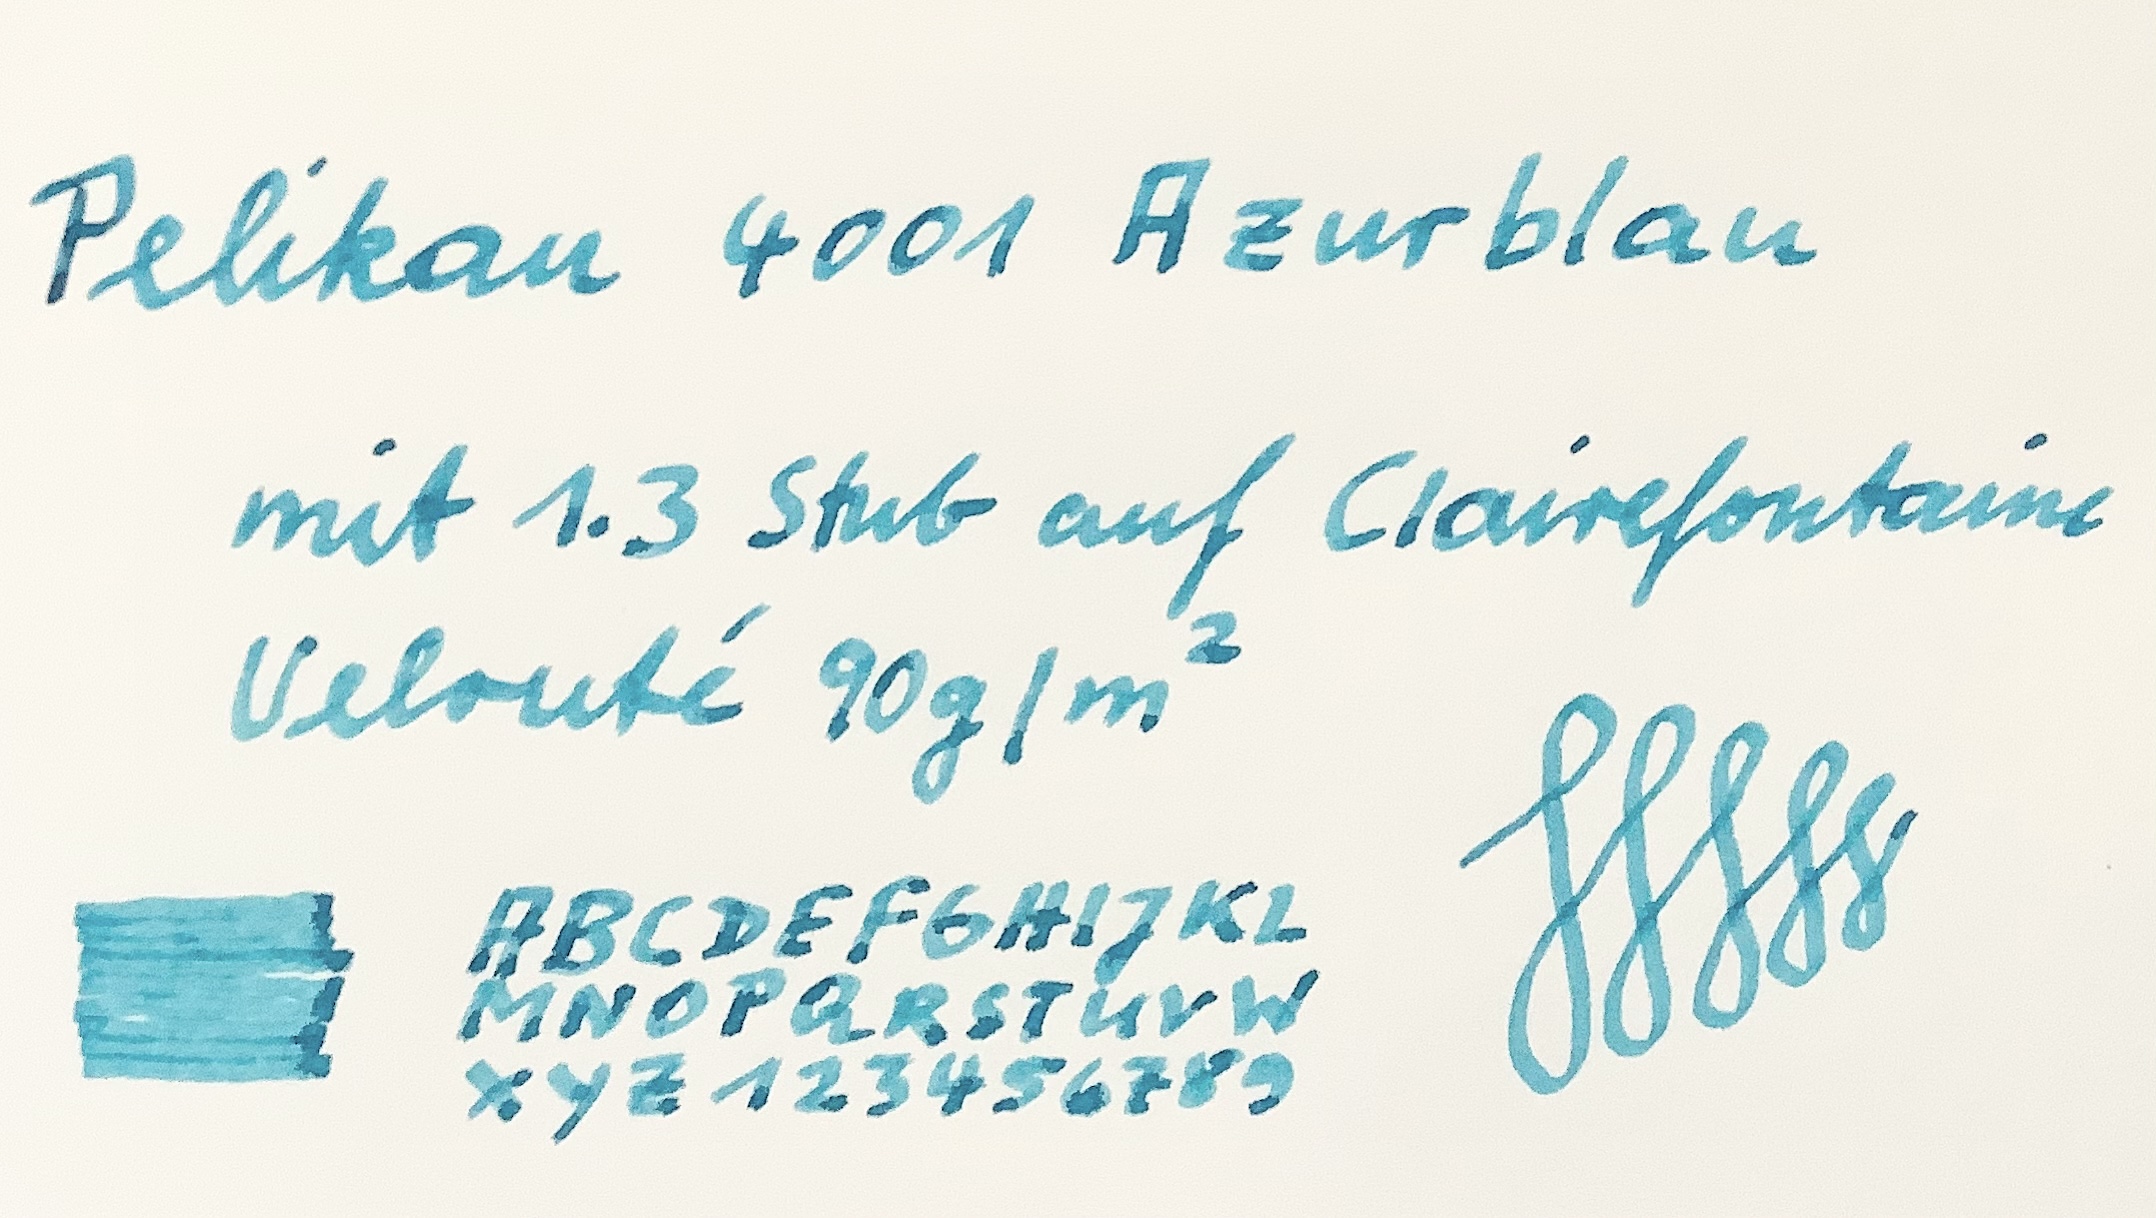 Pelikan 4001 Azurblau
mit 1.3 Stub auf Clairefontaine
Velouté 90g/m²
ABCDEFGHIJKL
MNOPQRSTUVW
XYZ 123456789